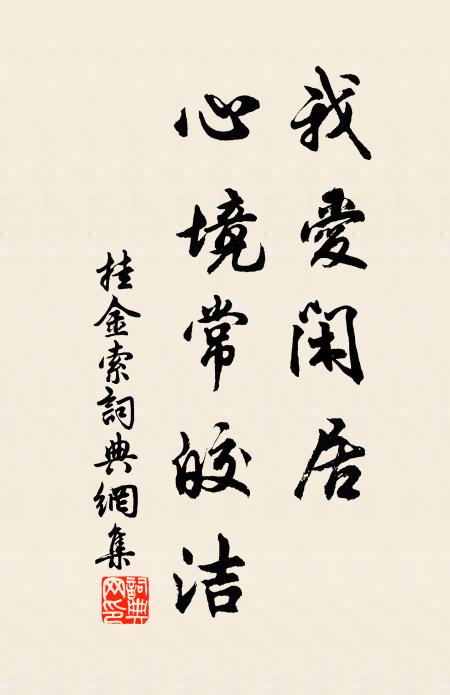 我愛閑居
心境常皎洁
挂金索詞典網集
詞典网印